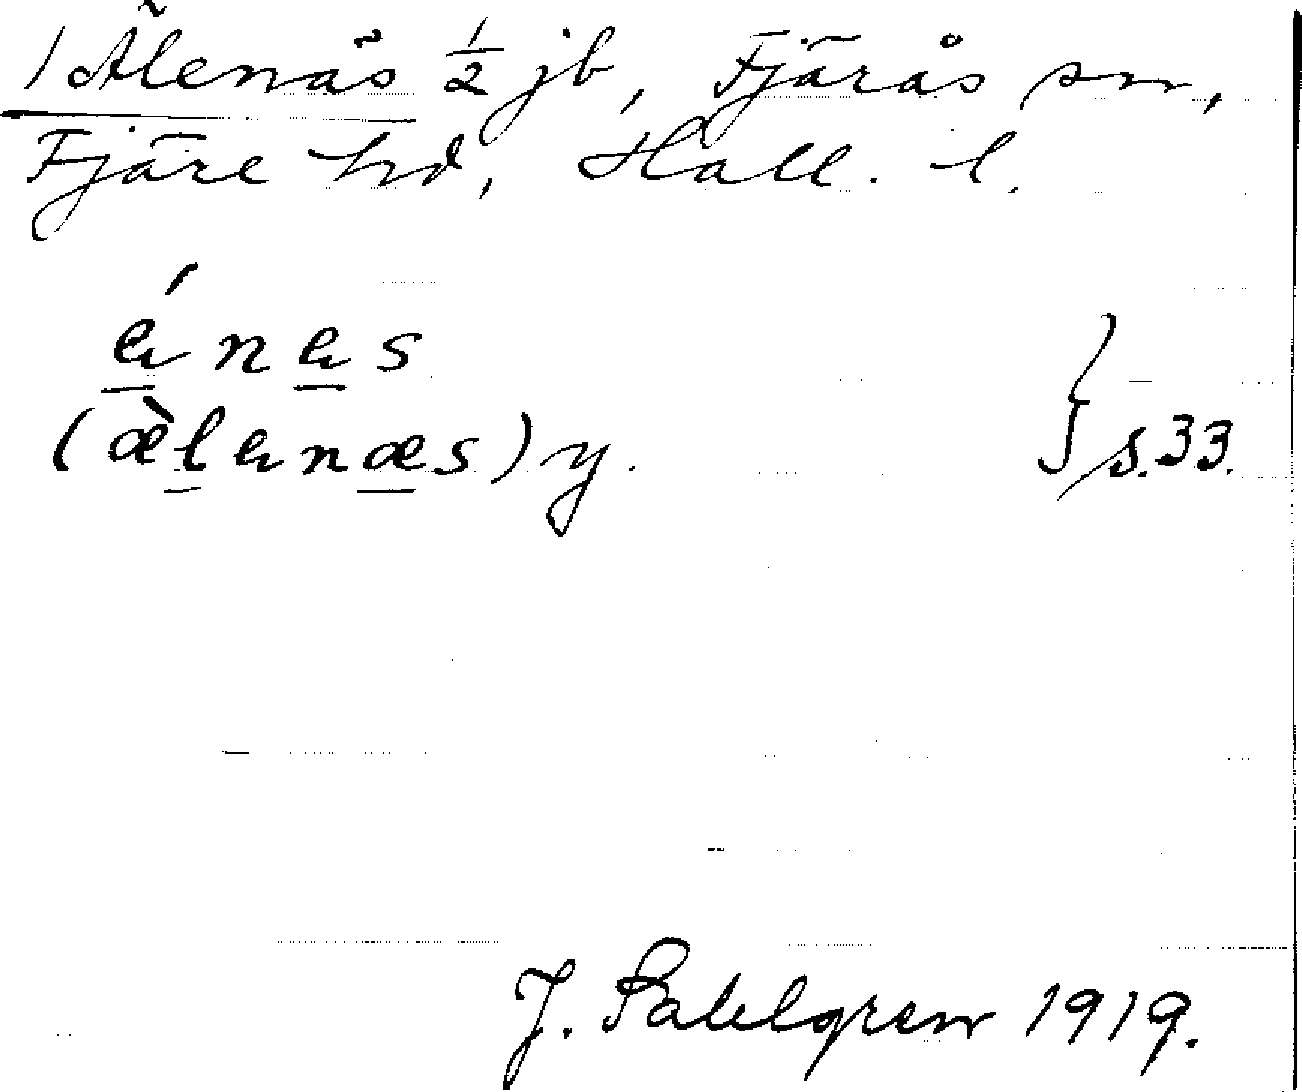 1 Älenäs ½ jb, Fjärås sn,
Fjäre hd, Hall. l.
énes
(æ̀lenæs) y.
} s. 33.
J. Sahlgren 1919.